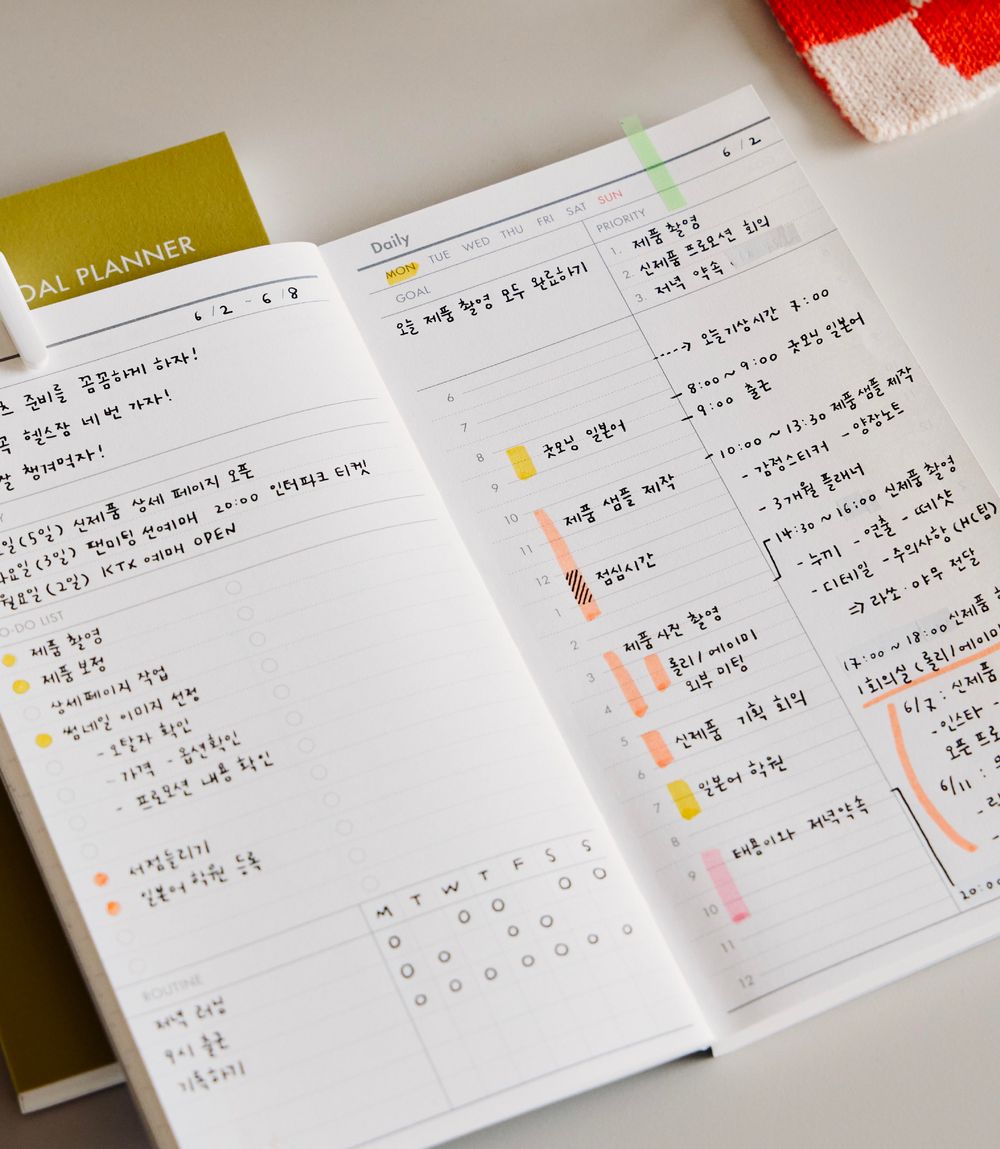 OAL PLANNER
6 / 2 ~ 6 / 8
준비를 꼼꼼하게 하자!
헬스장 네 번 가자!
챙겨먹자!
(5일) 신제품 상세 페이지 오픈
(3일) 팬미팅 선예매 20:00 인터파크 티켓
월요일 (2일) KTX 예매 OPEN
O-DO LIST
제품 촬영
제품 보정
상세페이지 작업
썸네일 이미지 선정
- 오탈자 확인
- 가격 - 옵션확인
- 프로모션 내용 확인
서점들리기
일본어 학원 등록
M T W T F S S
ROUTINE
저녁 러닝
9시 출근
기록하기
6 / 2
Daily
MON TUE WED THU FRI SAT SUN
GOAL
오늘 제품 촬영 모두 완료하기
PRIORITY
1. 제품 촬영
2. 신제품 프로모션 회의
3. 저녁 약속
6
7
8 굿모닝 일본어
9
10 제품 샘플 제작
11
12 점심시간
1
2 제품사진 촬영
3 롤리/에이미
외부 미팅
4
5 신제품 기획 회의
6
7 일본어 학원
8
9 태용이와 저녁약속
10
11
12
---> 오늘기상시간 7:00
8:00 ~ 9:00 굿모닝 일본어
9:00 출근
10:00 ~ 13:30 제품샘플 제작
- 감정스티커 - 양장노트
- 3개월 플래너
14:30 ~ 16:00 신제품 촬영
- 누끼 - 연출 - 떼샷
- 디테일 - 주의사항 (H(팀)
=> 라쏘·야무 전달
17:00 ~ 18:00 신제품
1회의실 (롤리/에이미
6/7 : 신제품
- 인스타 -
오픈 프로
6/11 :
20:00